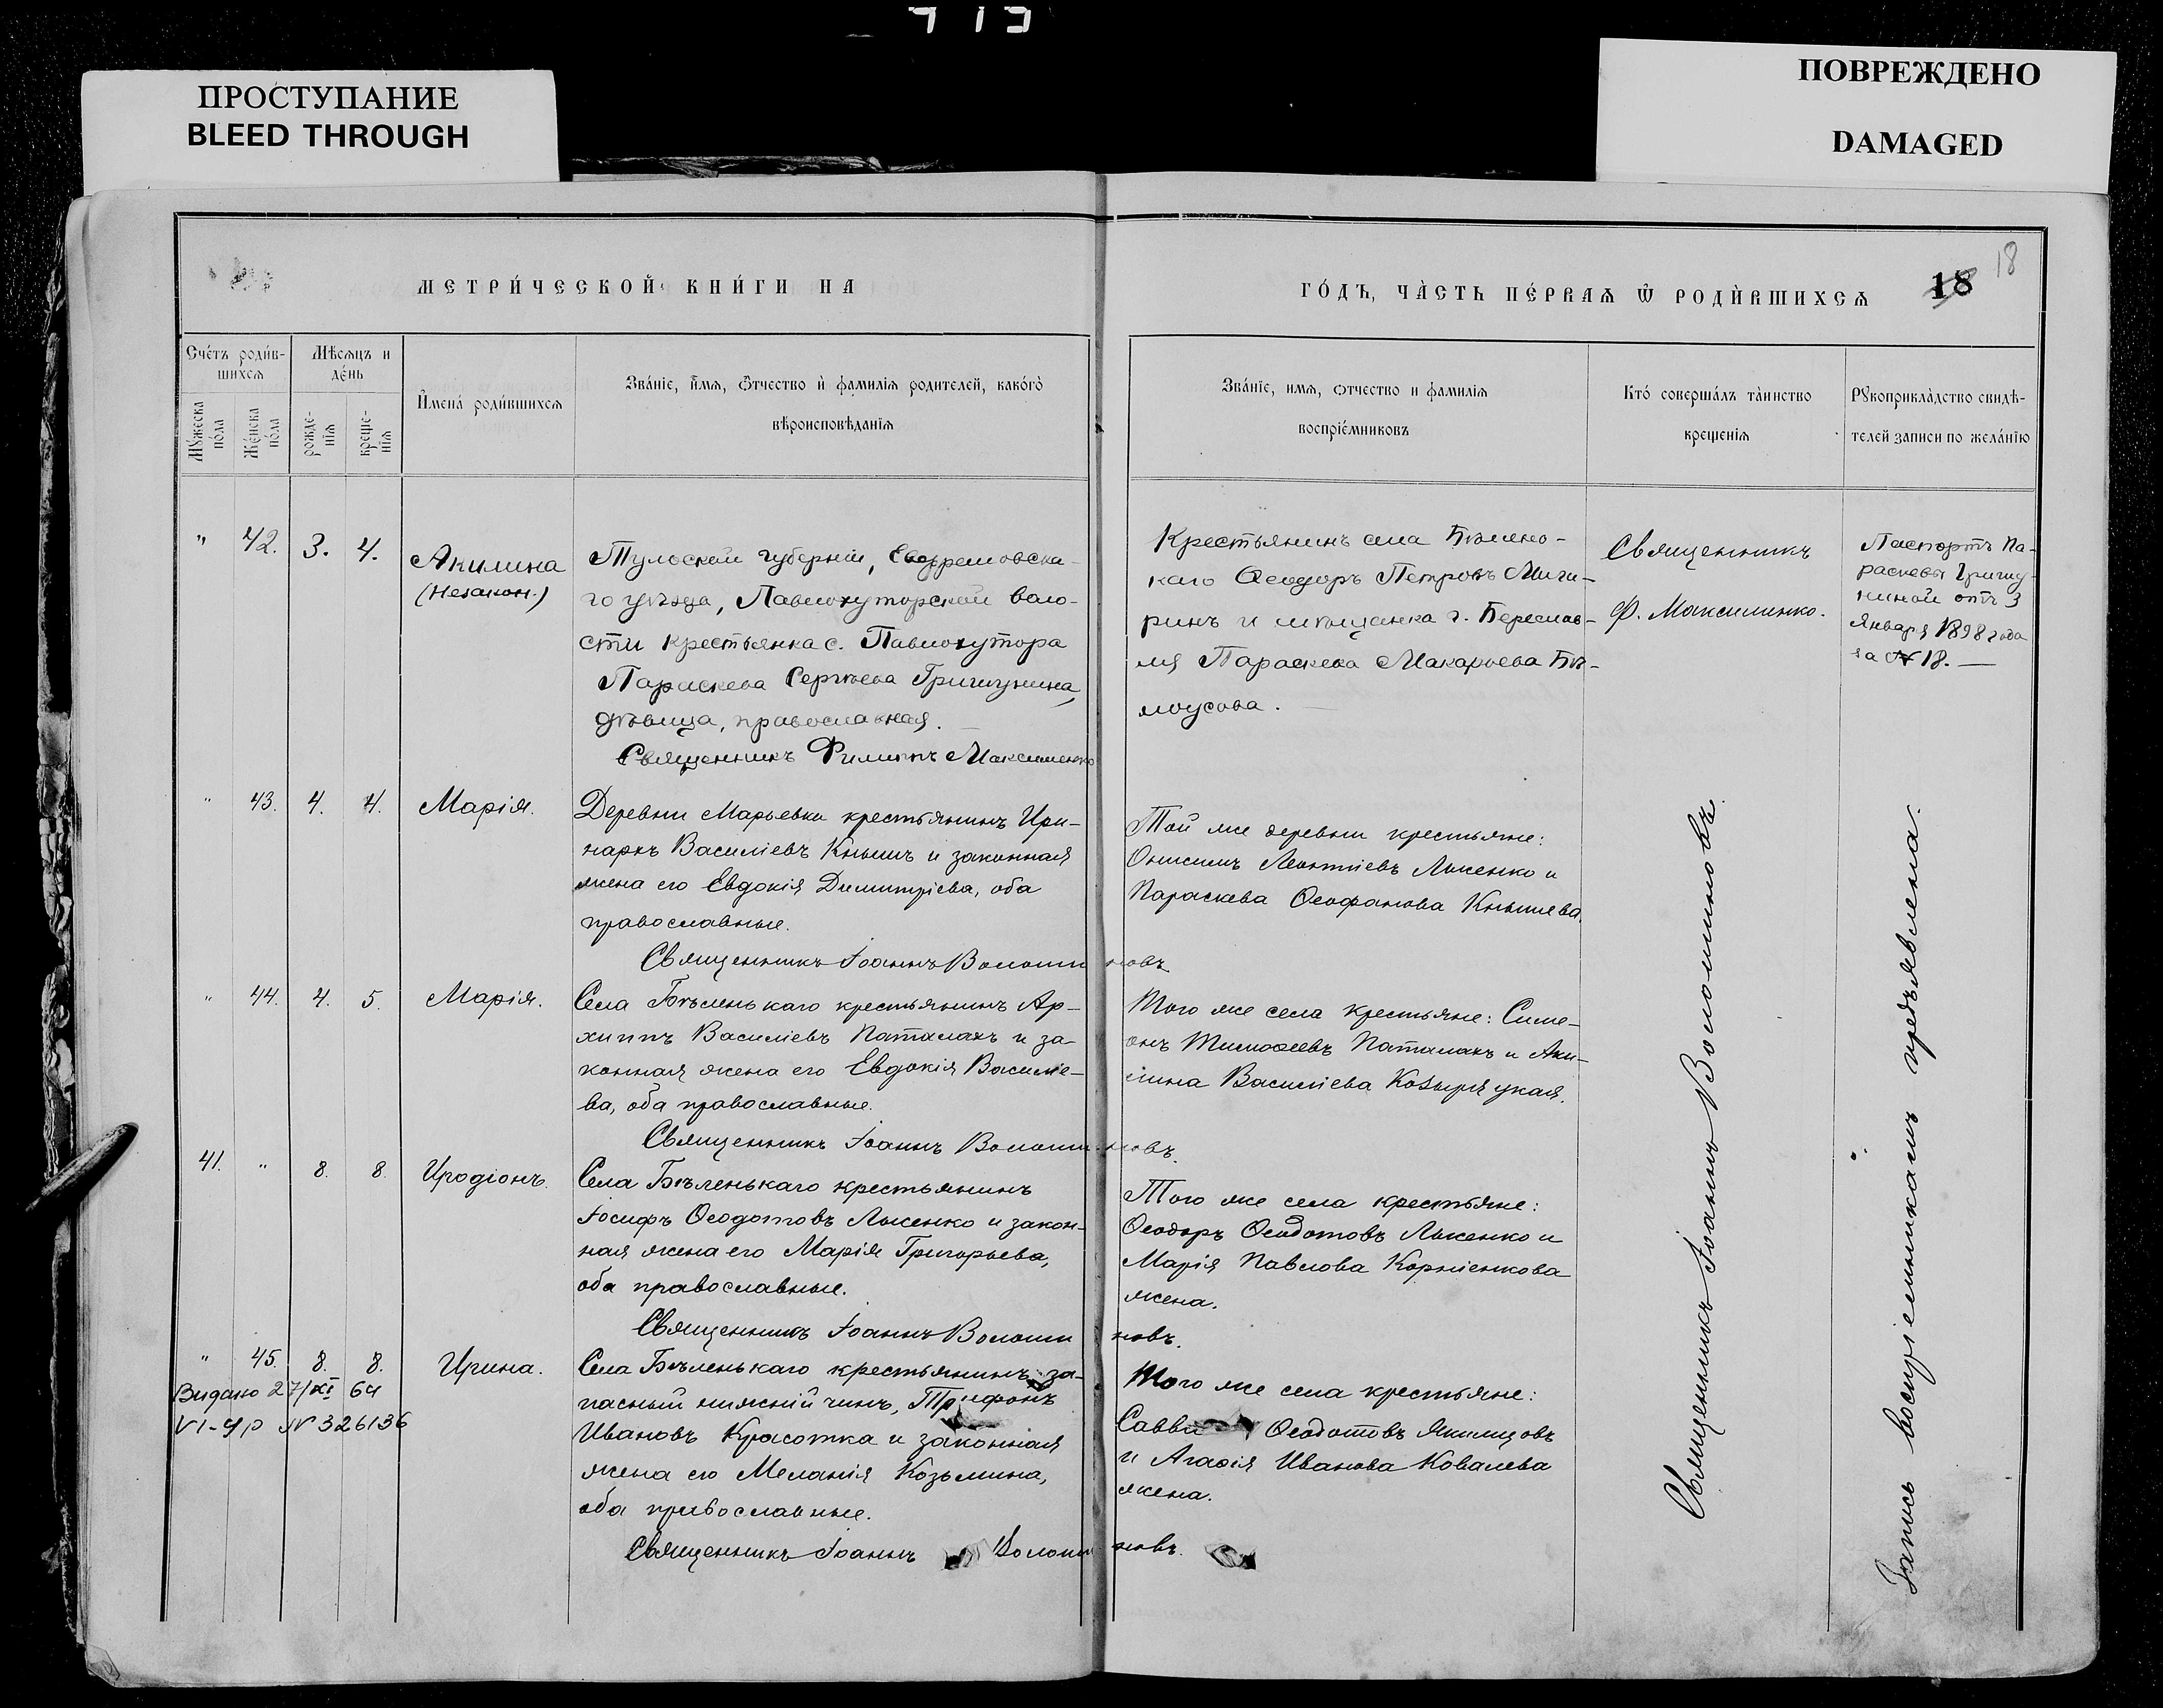 ПРОСТУПАНИЕ
BLEED THROUGH
ПОВРЕЖДЕНО
DAMAGED
МЕТРИ́ЧЕСКОЙ КНИ́ГИ НА
ГО́ДЪ, ЧА̀СТЬ ПЕ́РВАѦ Ѡ҆ РОДЍВШИХСѦ
18
18
Сче́тъ роди́в-
шихсѧ
Мꙋ́жеска по́ла
Же́нска по́ла
Мѣ́сѧцъ и де́нь
рожде-
нїѧ
креще-
нїѧ
И҆мена̀ роди́вшихсѧ
Зва́нїе, и҆́мѧ, ѻ҆́тчество и҆ фамилїѧ родителей, како́гѡ
вѣроисповѣданїѧ
Зва́нїе, имѧ, ѻтчество и фамилїѧ
воспрїе́мниковъ
Кто́ соверша́лъ та̀инство
крещенїѧ
Рꙋкоприкла̀дство свидѣ-
телей записи по жела́нїю
" 42. 3. 4.
Акилина
(Незакон.)
Тульской губерніи, Ефремовска-
го уѣзда, Павлохуторской воло-
сти крестьянка с. Павлохутора
Параскева Сергѣева Гришунина,
дѣвица, православная.
Священникъ Филиппъ Максименко
Крестьянинъ села Бѣлень-
каго Ѳеодоръ Петровъ Мичу-
ринъ и мѣщанка г. Береслав-
ля Параскева Макарьева Бѣ-
лоусова.
Священникъ
Ф. Максименко.
Паспортъ Па-
раскевы Гришу-
ниной отъ 3
Января 1898 года
за № 18.
" 43. 4. 4.
Марія.
Деревни Марьевки крестьянинъ Ири-
нархъ Василіевъ Кнышъ и законная
жена его Евдокія Димитріева, оба
православные.
Священникъ Іоаннъ Волошиновъ
Той же деревни крестьяне:
Онисимъ Леонтіевъ Лысенко и
Параскева Ѳеофанова Кнышева.
" 44. 4. 5.
Марія.
Села Бѣленькаго крестьянинъ Ар-
хиппъ Василіевъ Паталахъ и за-
конная жена его Евдокія Василіе-
ва, оба православные.
Священникъ Іоаннъ Волошиновъ.
Того же села крестьяне: Симе-
онъ Тимоѳеевъ Паталахъ и Аки-
лина Василіева Козырицкая.
41. " 8. 8
Иродіонъ.
Села Бѣленькаго крестьянинъ
Іосифъ Ѳеодотовъ Лысенко и закон-
ная жена его Марія Григорьева,
оба православные.
Священникъ Іоаннъ Волошиновъ.
Того же села крестьяне:
Ѳеодоръ Ѳеодотовъ Лысенко и
Марія Павлова Корніенкова
жена.
" 45. 8. 8.
Ирина.
Видано 27/XI 64
VI-ЯР № 326136
Села Бѣленькаго крестьянинъ за-
пасный нижній чинъ, Трифонъ
Ивановъ Красотка и законная
жена его Меланія Козьмина,
оба православные.
Священникъ Іоаннъ Волошиновъ.
Того же села крестьяне:
Савва Ѳеодотовъ Якимцовъ
и Агаѳія Иванова Ковалева
жена.
Священникъ Іоаннъ Волошиновъ.
Запись воспріемникамъ предъявлена.